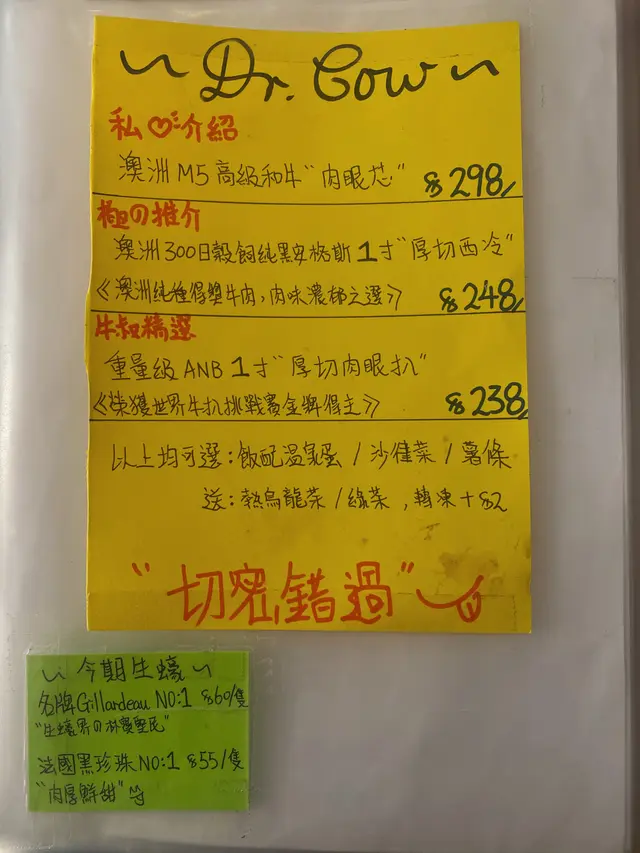 ~ Dr. Cow ~
私♡介紹
澳洲 M5 高級和牛 "肉眼芯" $298/
極の推介
澳洲 300日穀飼純黑安格斯 1寸 "厚切西冷"
《澳洲純種得獎牛肉，肉味濃郁之選》 $248/
牛叔精選
重量級 ANB 1寸 "厚切肉眼扒"
《榮獲世界牛扒挑戰賽金牌得主》 $238/
以上均可選：飯配温泉蛋 / 沙律菜 / 薯條
送：熱烏龍茶 / 綠茶，轉凍 + $2
"切密錯過"
~ 今期生蠔 ~
名牌 Gillardeau NO:1 $60/隻
"生蠔界の林寶堅尼"
法國黑珍珠 NO:1 $55/隻
"肉厚鮮甜"